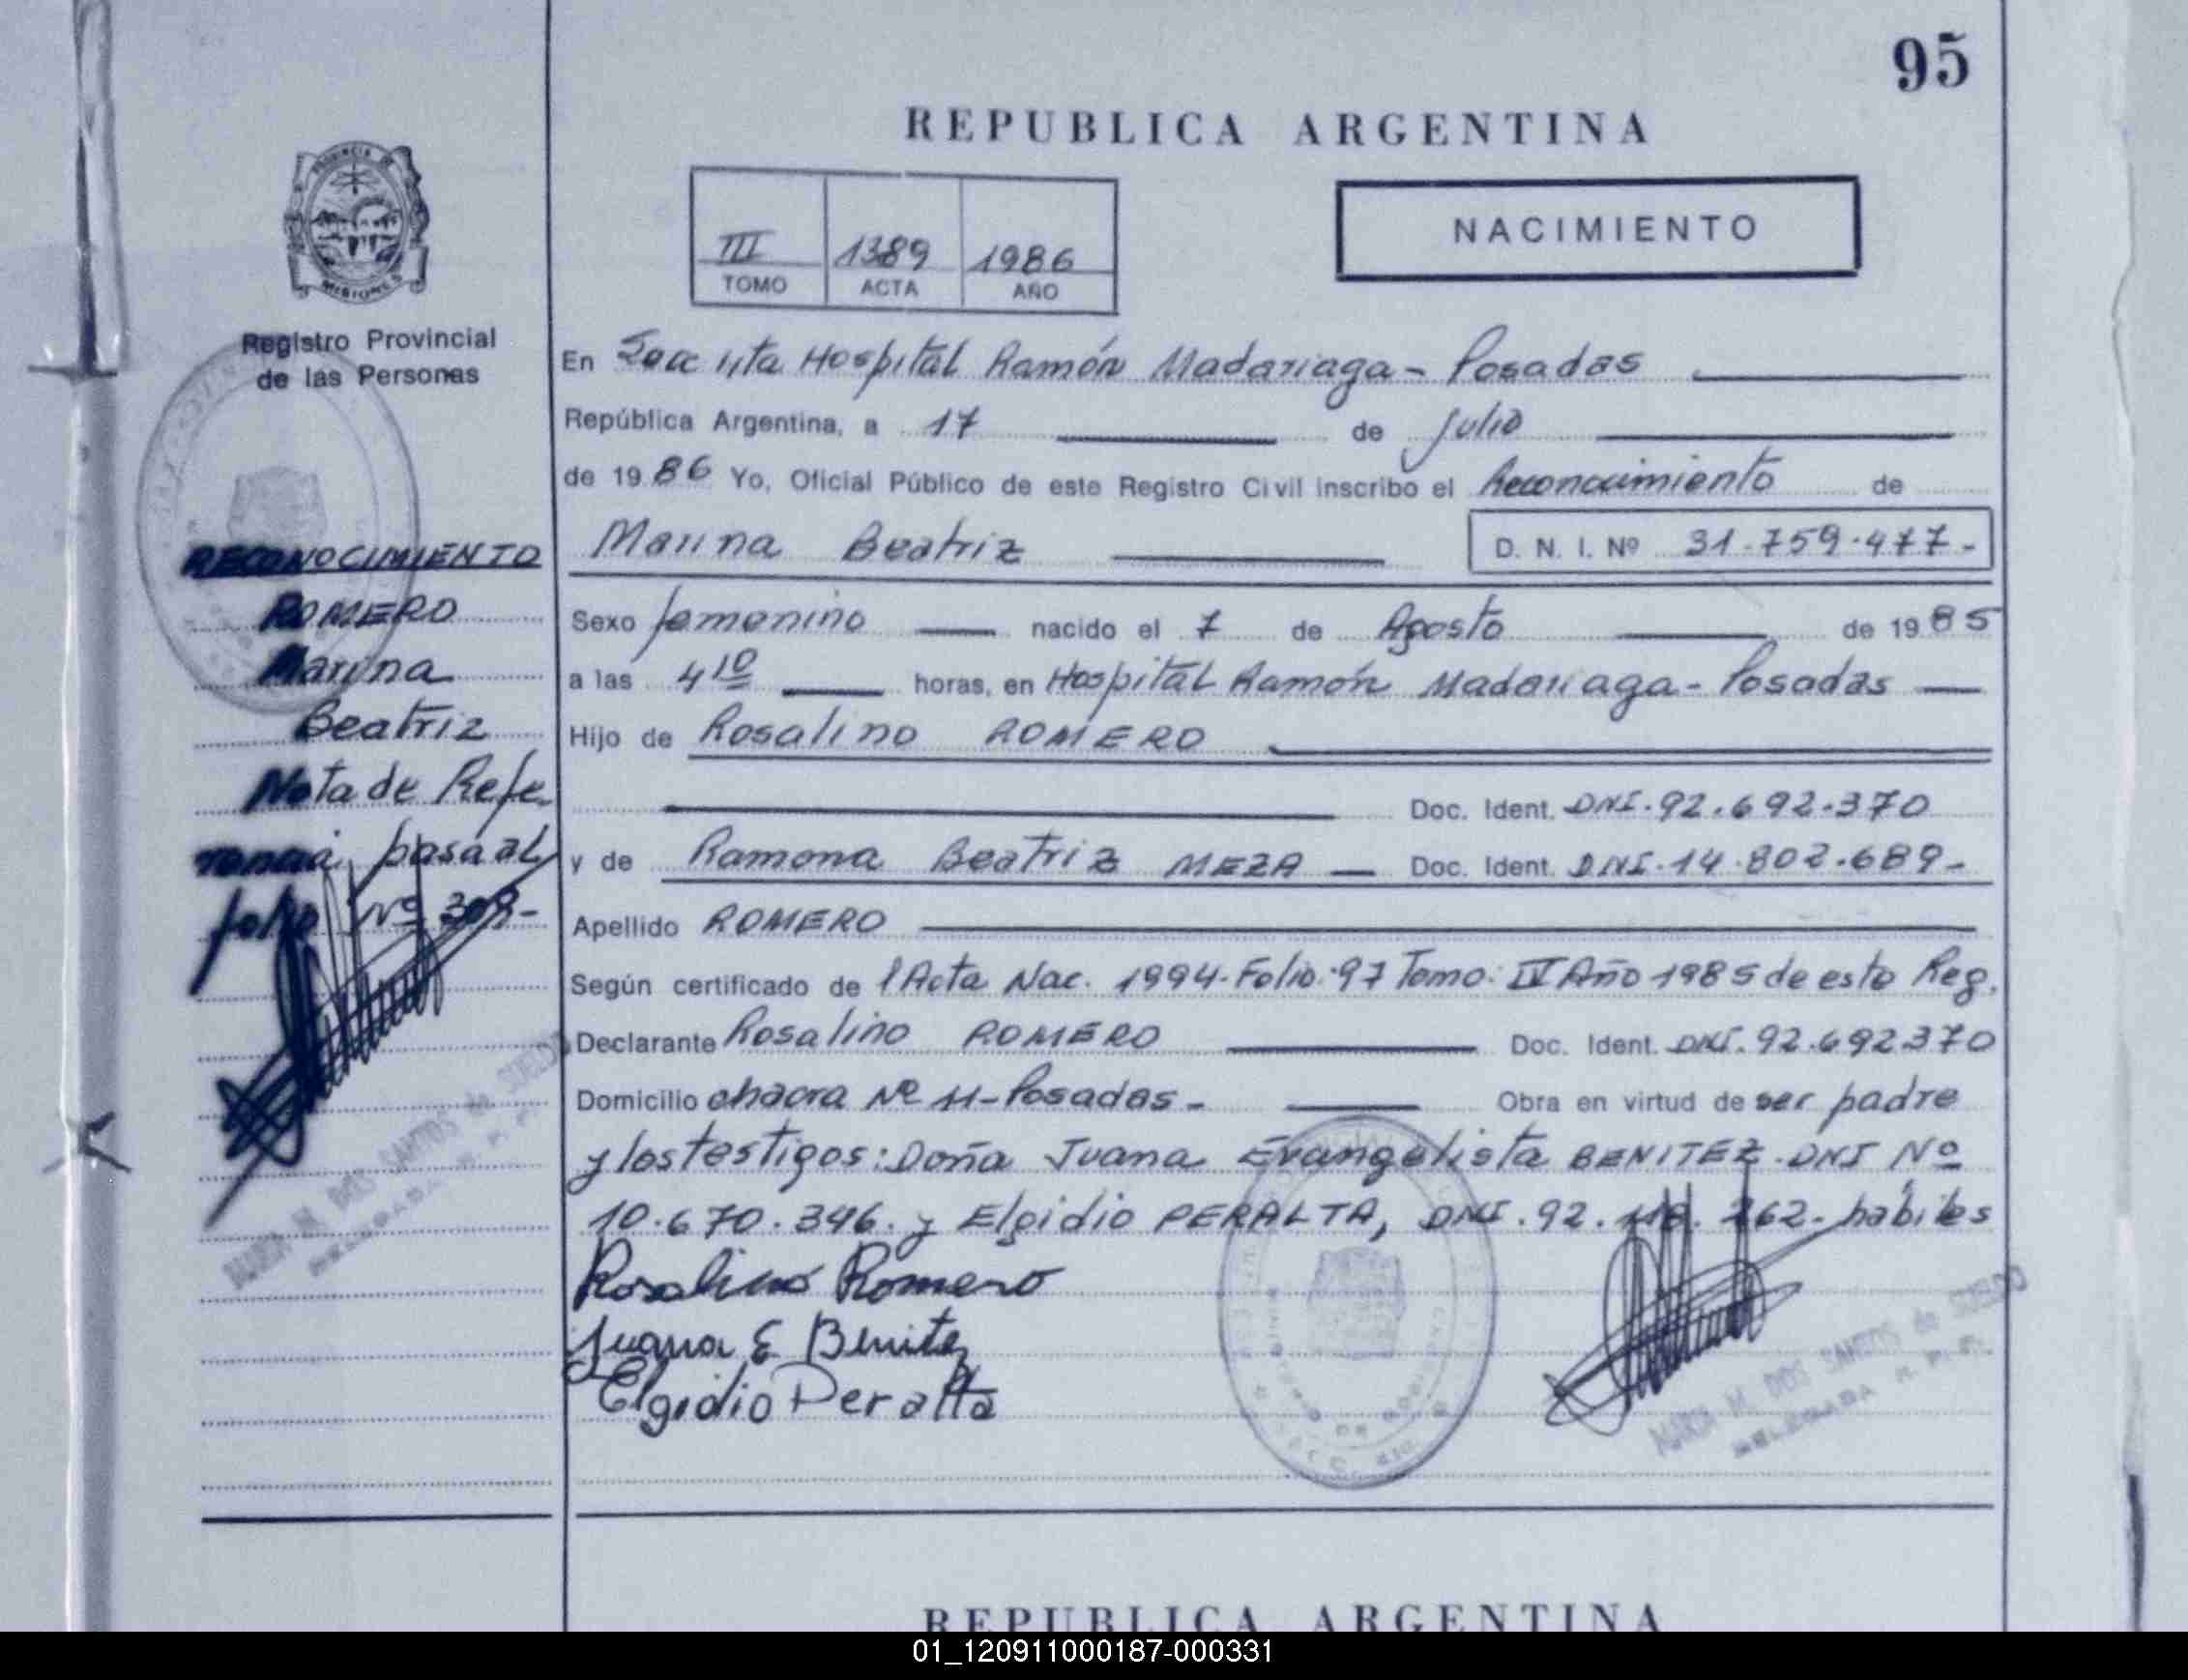 95
REPUBLICA ARGENTINA
III 1389 1986
TOMO ACTA AÑO
NACIMIENTO
PROVINCIA DE
MISIONES
Registro Provincial
de las Personas
RECONOCIMIENTO
ROMERO
Marina
Beatriz
Nota de Refe-
rencia, pasa al
folio Nº
En Hospital Ramón Madariaga - Posadas
República Argentina, a 17 de Julio
de 1986 Yo, Oficial Público de este Registro Civil inscribo el Reconocimiento de
Marina Beatriz D. N. I. Nº 31.759.477-
Sexo femenino nacido el 7 de Agosto de 1985
a las 4 10 horas, en Hospital Ramón Madariaga - Posadas
Hijo de Rosalino ROMERO
Doc. Ident. DNI. 92.692.370
y de Ramona Beatriz MEZA Doc. Ident. DNI. 14.802.689-
Apellido ROMERO
Según certificado de l Acta Nac. 1994. Folio: 97 Tomo: IV Año 1985 de este Reg.
Declarante Rosalino ROMERO Doc. Ident. DNI. 92.692.370
Domicilio chacra Nº 11 - Posadas - Obra en virtud de ser padre
y los testigos: Doña Juana Evangelista BENITEZ. DNI Nº
10.670.346. y Elgidio PERALTA, DNI. 92. hábiles
Rosalino Romero
Juana E Benitez
Elgidio Peralta
MARIA M. DOS SANTOS de SUELDO
DELEGADA R. P. P.
MARIA M. DOS SANTOS de SUELDO
DELEGADA R. P. P.
REPUBLICA ARGENTINA
01_120911000187-000331